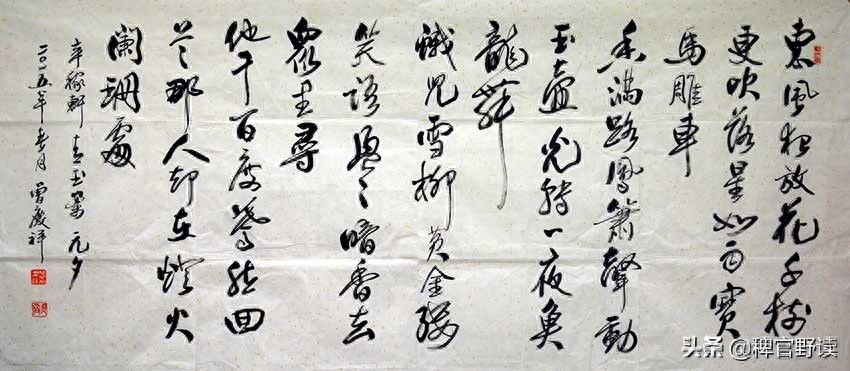 東風夜放花千树
更吹落星如雨寶
馬雕車
香满路鳳簫聲動
玉壺光轉一夜魚
龍舞
蛾兒雪柳黄金縷
笑語盈々暗香去
眾里尋
他千百度驀然回
首那人却在燈火
闌珊處
辛稼軒 青玉案 元夕
二〇一五年春月 曾慶祥
头条 @稗官野读